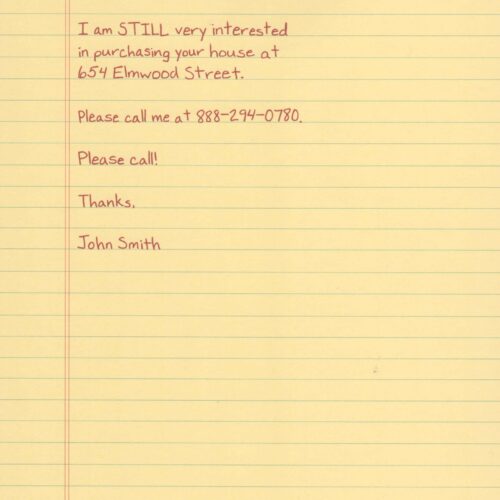 I am STILL very interested
in purchasing your house at
654 Elmwood Street.
Please call me at 888-294-0780.
Please call!
Thanks,
John Smith